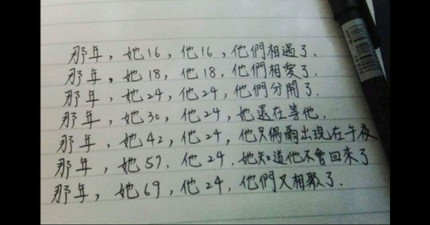 那年，她16，他16，他們相遇了．
那年，她18，他18，他們相愛了．
那年，她24，他24，他們分開了．
那年，她30，他24，她還在等他．
那年，她42，他24，他只偶爾出現在午夜
那年，她57，他24，她知道他不會回來了
那年，她69，他24，他們又相聚了．